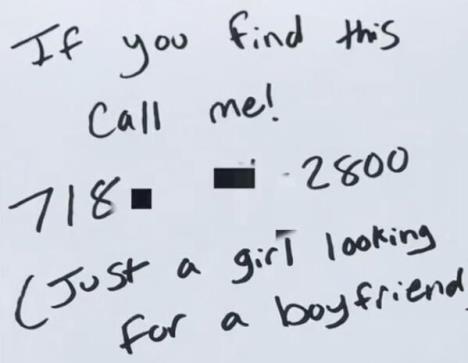 If you find this
Call me!
718 -2800
(Just a girl looking
for a boyfriend